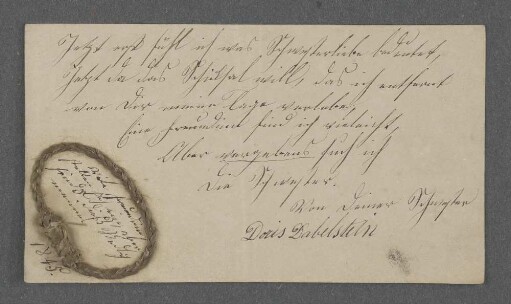 Jetzt erst fühl ich was Schwesterliebe bedeutet,
Jetzt da das Schiksal will, das ich entfernt
von Dir meine Tage verlebe,
Eine Freundinn find ich vieleicht,
Aber vergebens such ich
Die Schwester.
Von Deiner Schwester
Doris Dabelstein
1845.